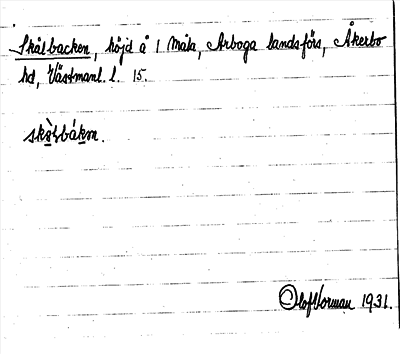 Skålbacken, höjd å 1 Måla, Arboga landsförs, Åkerbo
hd, Västmanl. l. 15.
skò̱lbáḵən.
Olof Norman 1931.